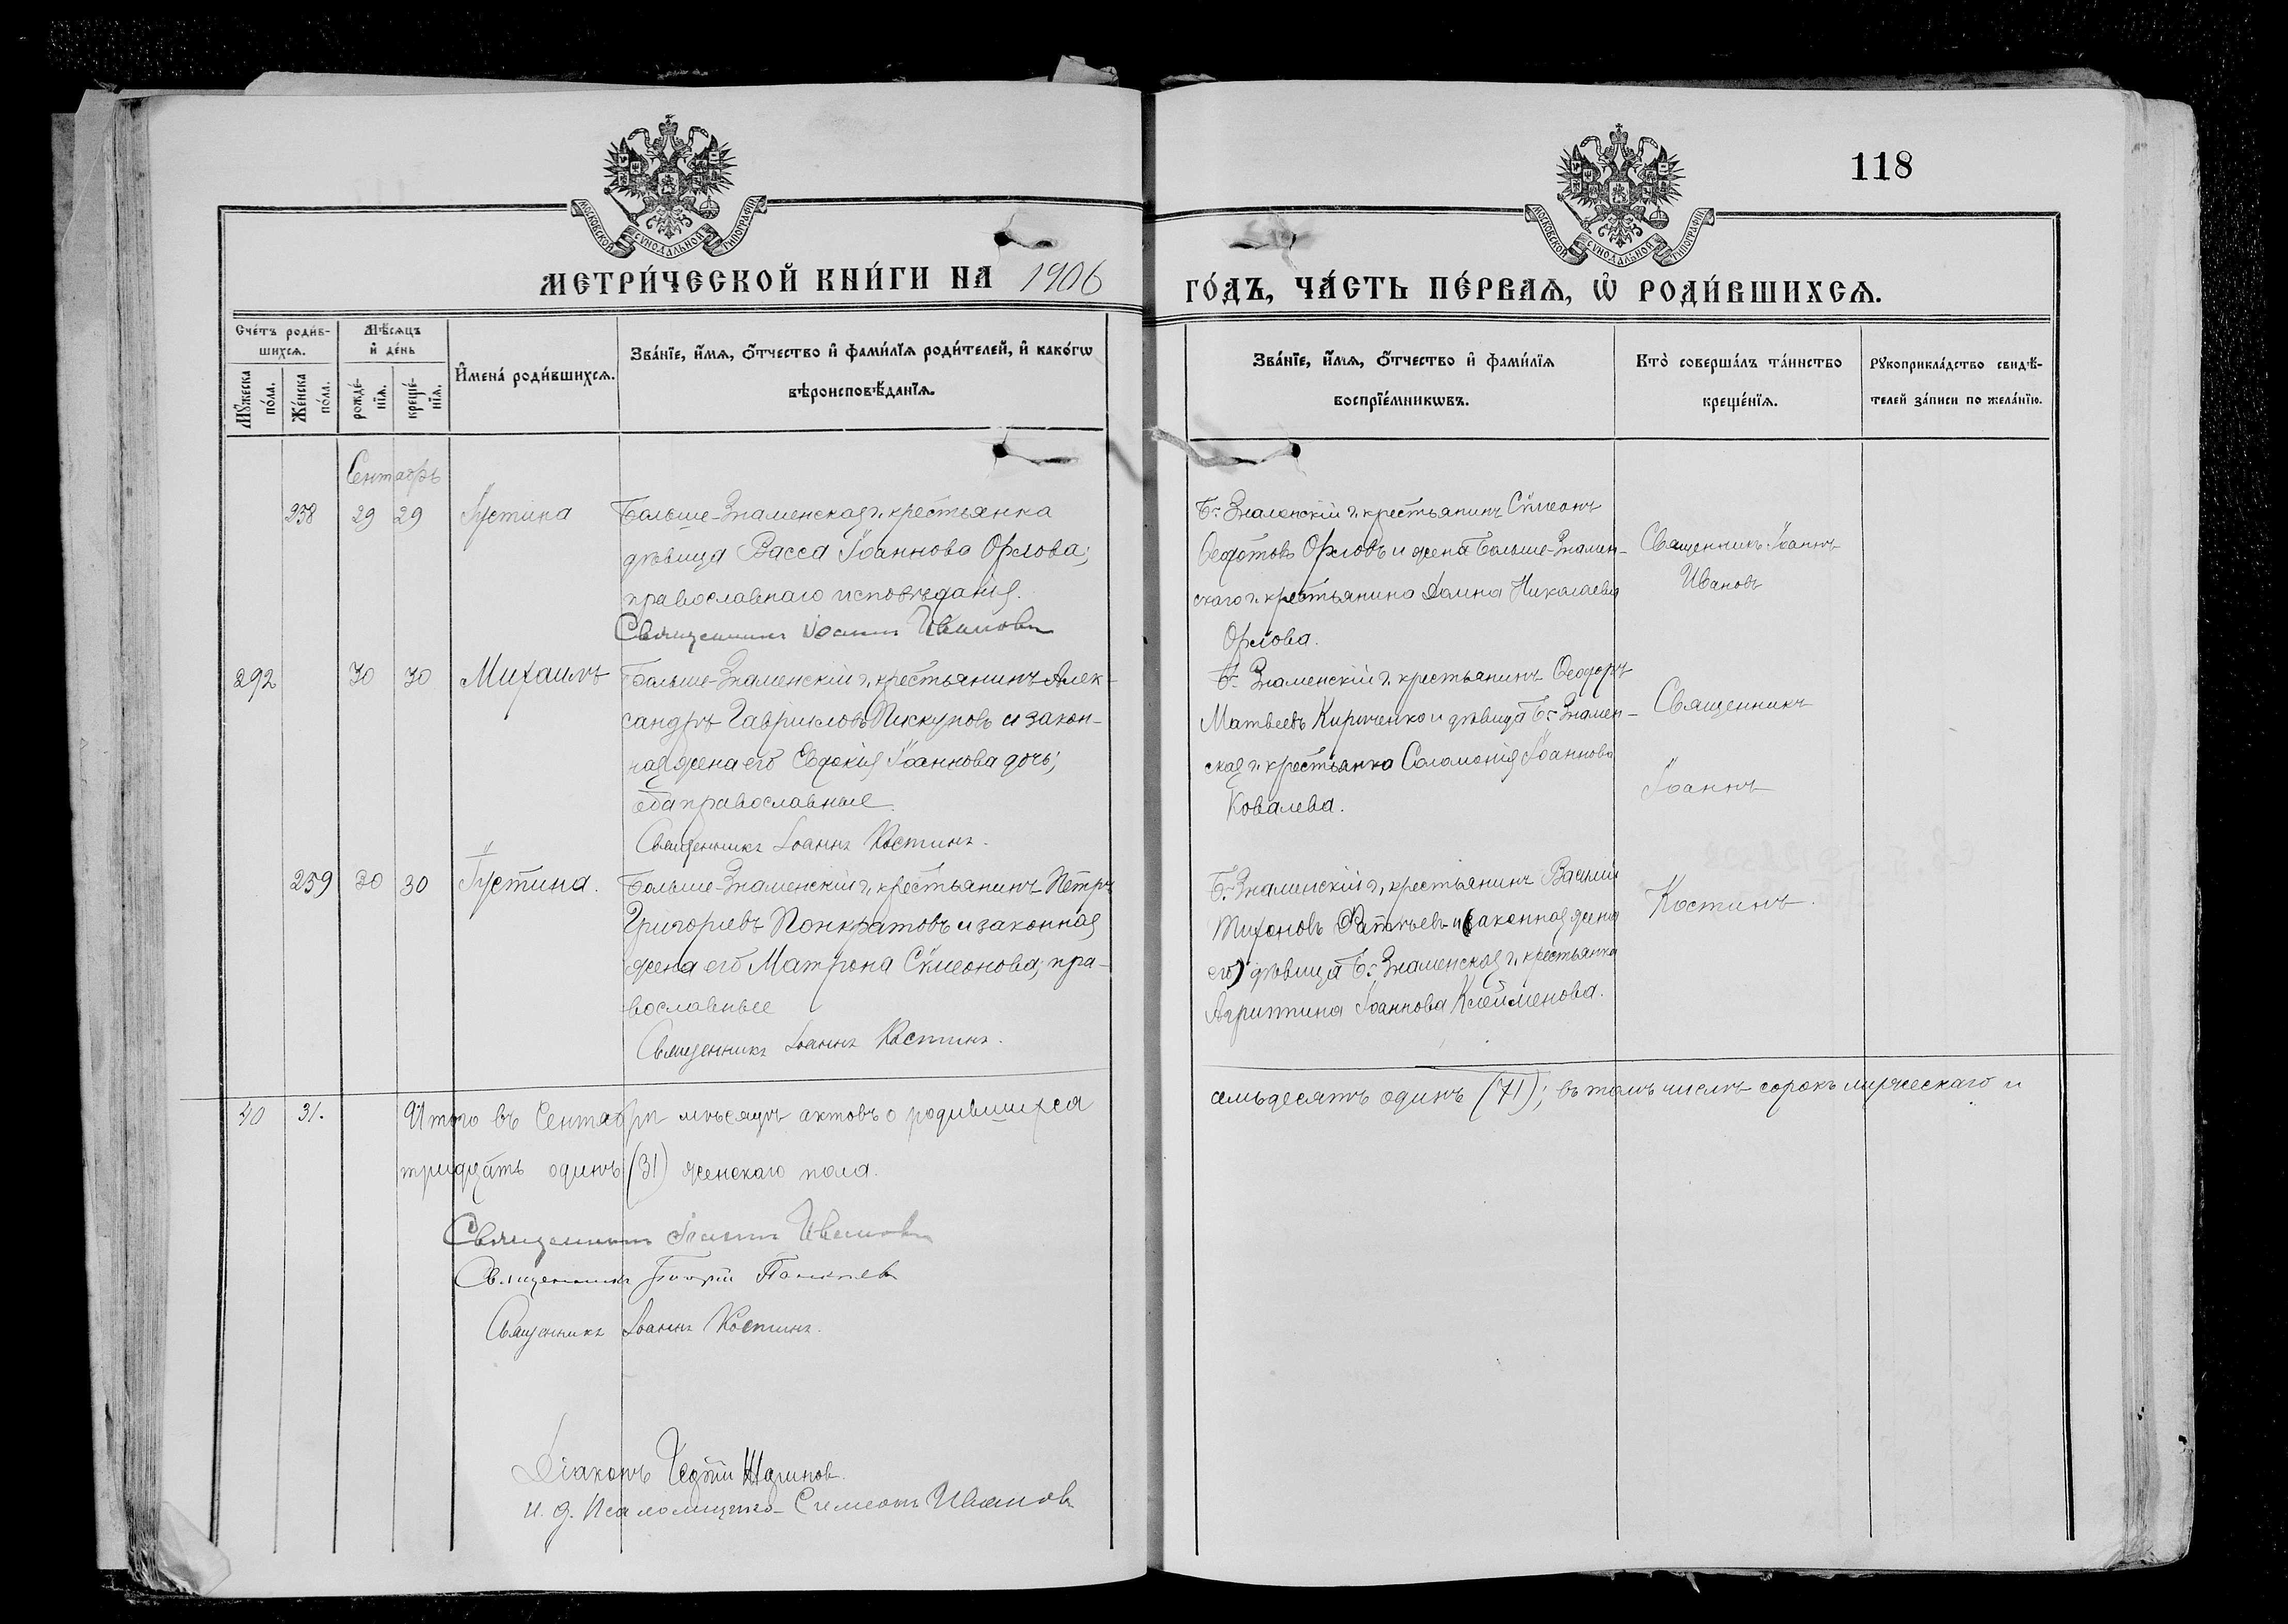 118
МОСКОВСКОЙ СѴНОДАЛЬНОЙ ТИПОГРАФІИ
МОСКОВСКОЙ СѴНОДАЛЬНОЙ ТИПОГРАФІИ
МЕТРИ́ЧЕСКОЙ КНИ́ГИ НА 1906
ГО́ДЪ, ЧА́СТЬ ПЕ́РВАѦ, Ѡ РОДИ́ВШИХСѦ.
Сче́тъ роди́в-
шихсѧ.
Мꙋ́жеска
по́ла.
Же́нска
по́ла.
Мѣ́сѧцъ
и де́нь
рожде́-
нїѧ.
креще́-
нїѧ.
Имена́ роди́вшихсѧ.
Зва́нїе, и́мѧ, ѻ́тчество и фами́лїѧ роди́телей, и како́гѡ
вѣроисповѣ́данїѧ.
Зва́нїе, и́мѧ, ѻ́тчество и фами́лїѧ
воспрїе́мникѡвъ.
Кто̀ соверша́лъ та́инство
креще́нїѧ.
Рꙋкоприкла́дство свидѣ́-
телей за́писи по жела́нїю.
Сентябрь
258 29 29 Іустина
Больше-Знаменская, крестьянка
дѣвица Васса Іоаннова Орлова;
православнаго исповѣданія.
Священникъ Іоаннъ Ивановъ
Б.-Знаменскій, крестьянинъ Сѵмеонъ
Ѳедотовъ Орловъ и жена Больше-Знамен-
скаго, крестьянина Домна Николаева
Орлова.
Священникъ Іоаннъ
Ивановъ
292 30 30 Михаилъ
Больше-Знаменскій, крестьянинъ Алек-
сандръ Гавриловъ Пискуновъ и закон-
ная жена его Евдокія Іоаннова дочь;
оба православные.
Священникъ Іоаннъ Костинъ.
Б. Знаменскій, крестьянинъ Ѳеодоръ
Матвеевъ Кириченко и дѣвица Б. Знамен-
ская, крестьянка Саломонія Іоаннова
Ковалева.
Священникъ
Іоаннъ
Костинъ.
259 30 30 Іустина.
Больше-Знаменскій, крестьянинъ Петръ
Григорьевъ Понкратовъ и законная
жена его Матрона Сѵмеонова; пра-
вославные
Священникъ Іоаннъ Костинъ.
Б. Знаменскій, крестьянинъ Василій
Тихоновъ Фатѣевъ и (законная жена
его) дѣвица Б. Знаменская, крестьянка
Агриппина Іоаннова Клейменова.
40 31. Итого въ Сентябрѣ мѣсяцѣ актовъ о родившихся
семьдесятъ одинъ (71); въ томъ числѣ сорокъ мужескаго и
тридцать одинъ (31) женскаго пола.
Священникъ Іоаннъ Ивановъ
Священникъ Георгій
Священникъ Іоаннъ Костинъ.
Діаконъ
И. д. Псаломщика Симеонъ Ивановъ